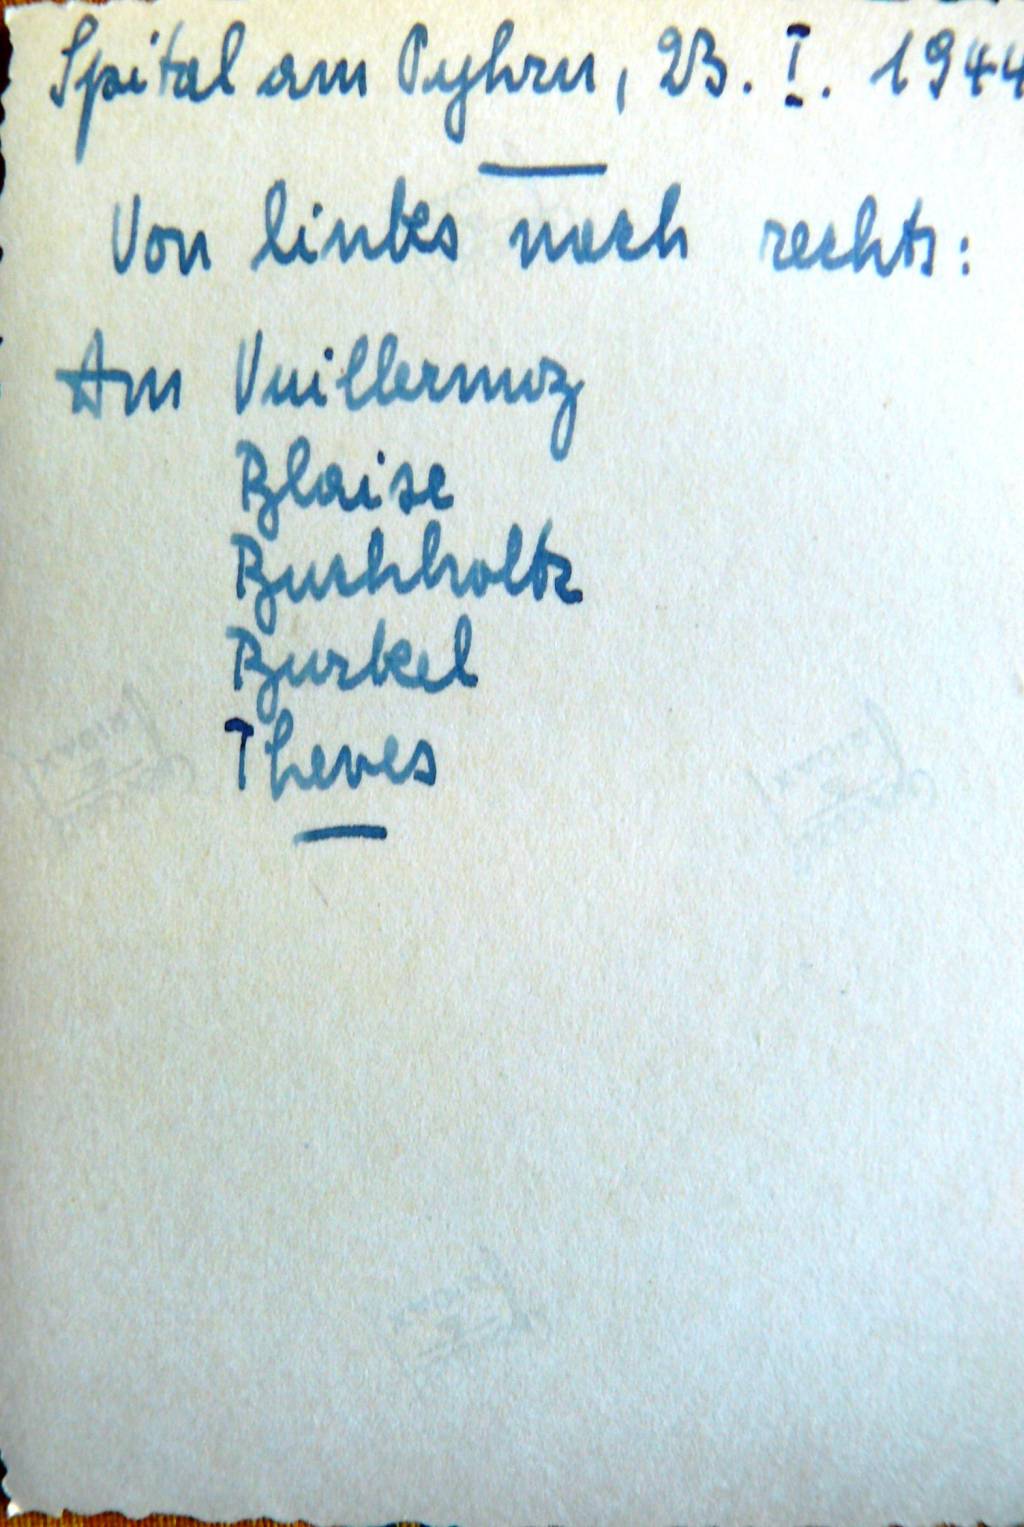 Spital am Pyhrn, 23. I. 1944
Von links nach rechts:
Am Vuillermoz
Blaise
Buchholtz
Burkel
Theves